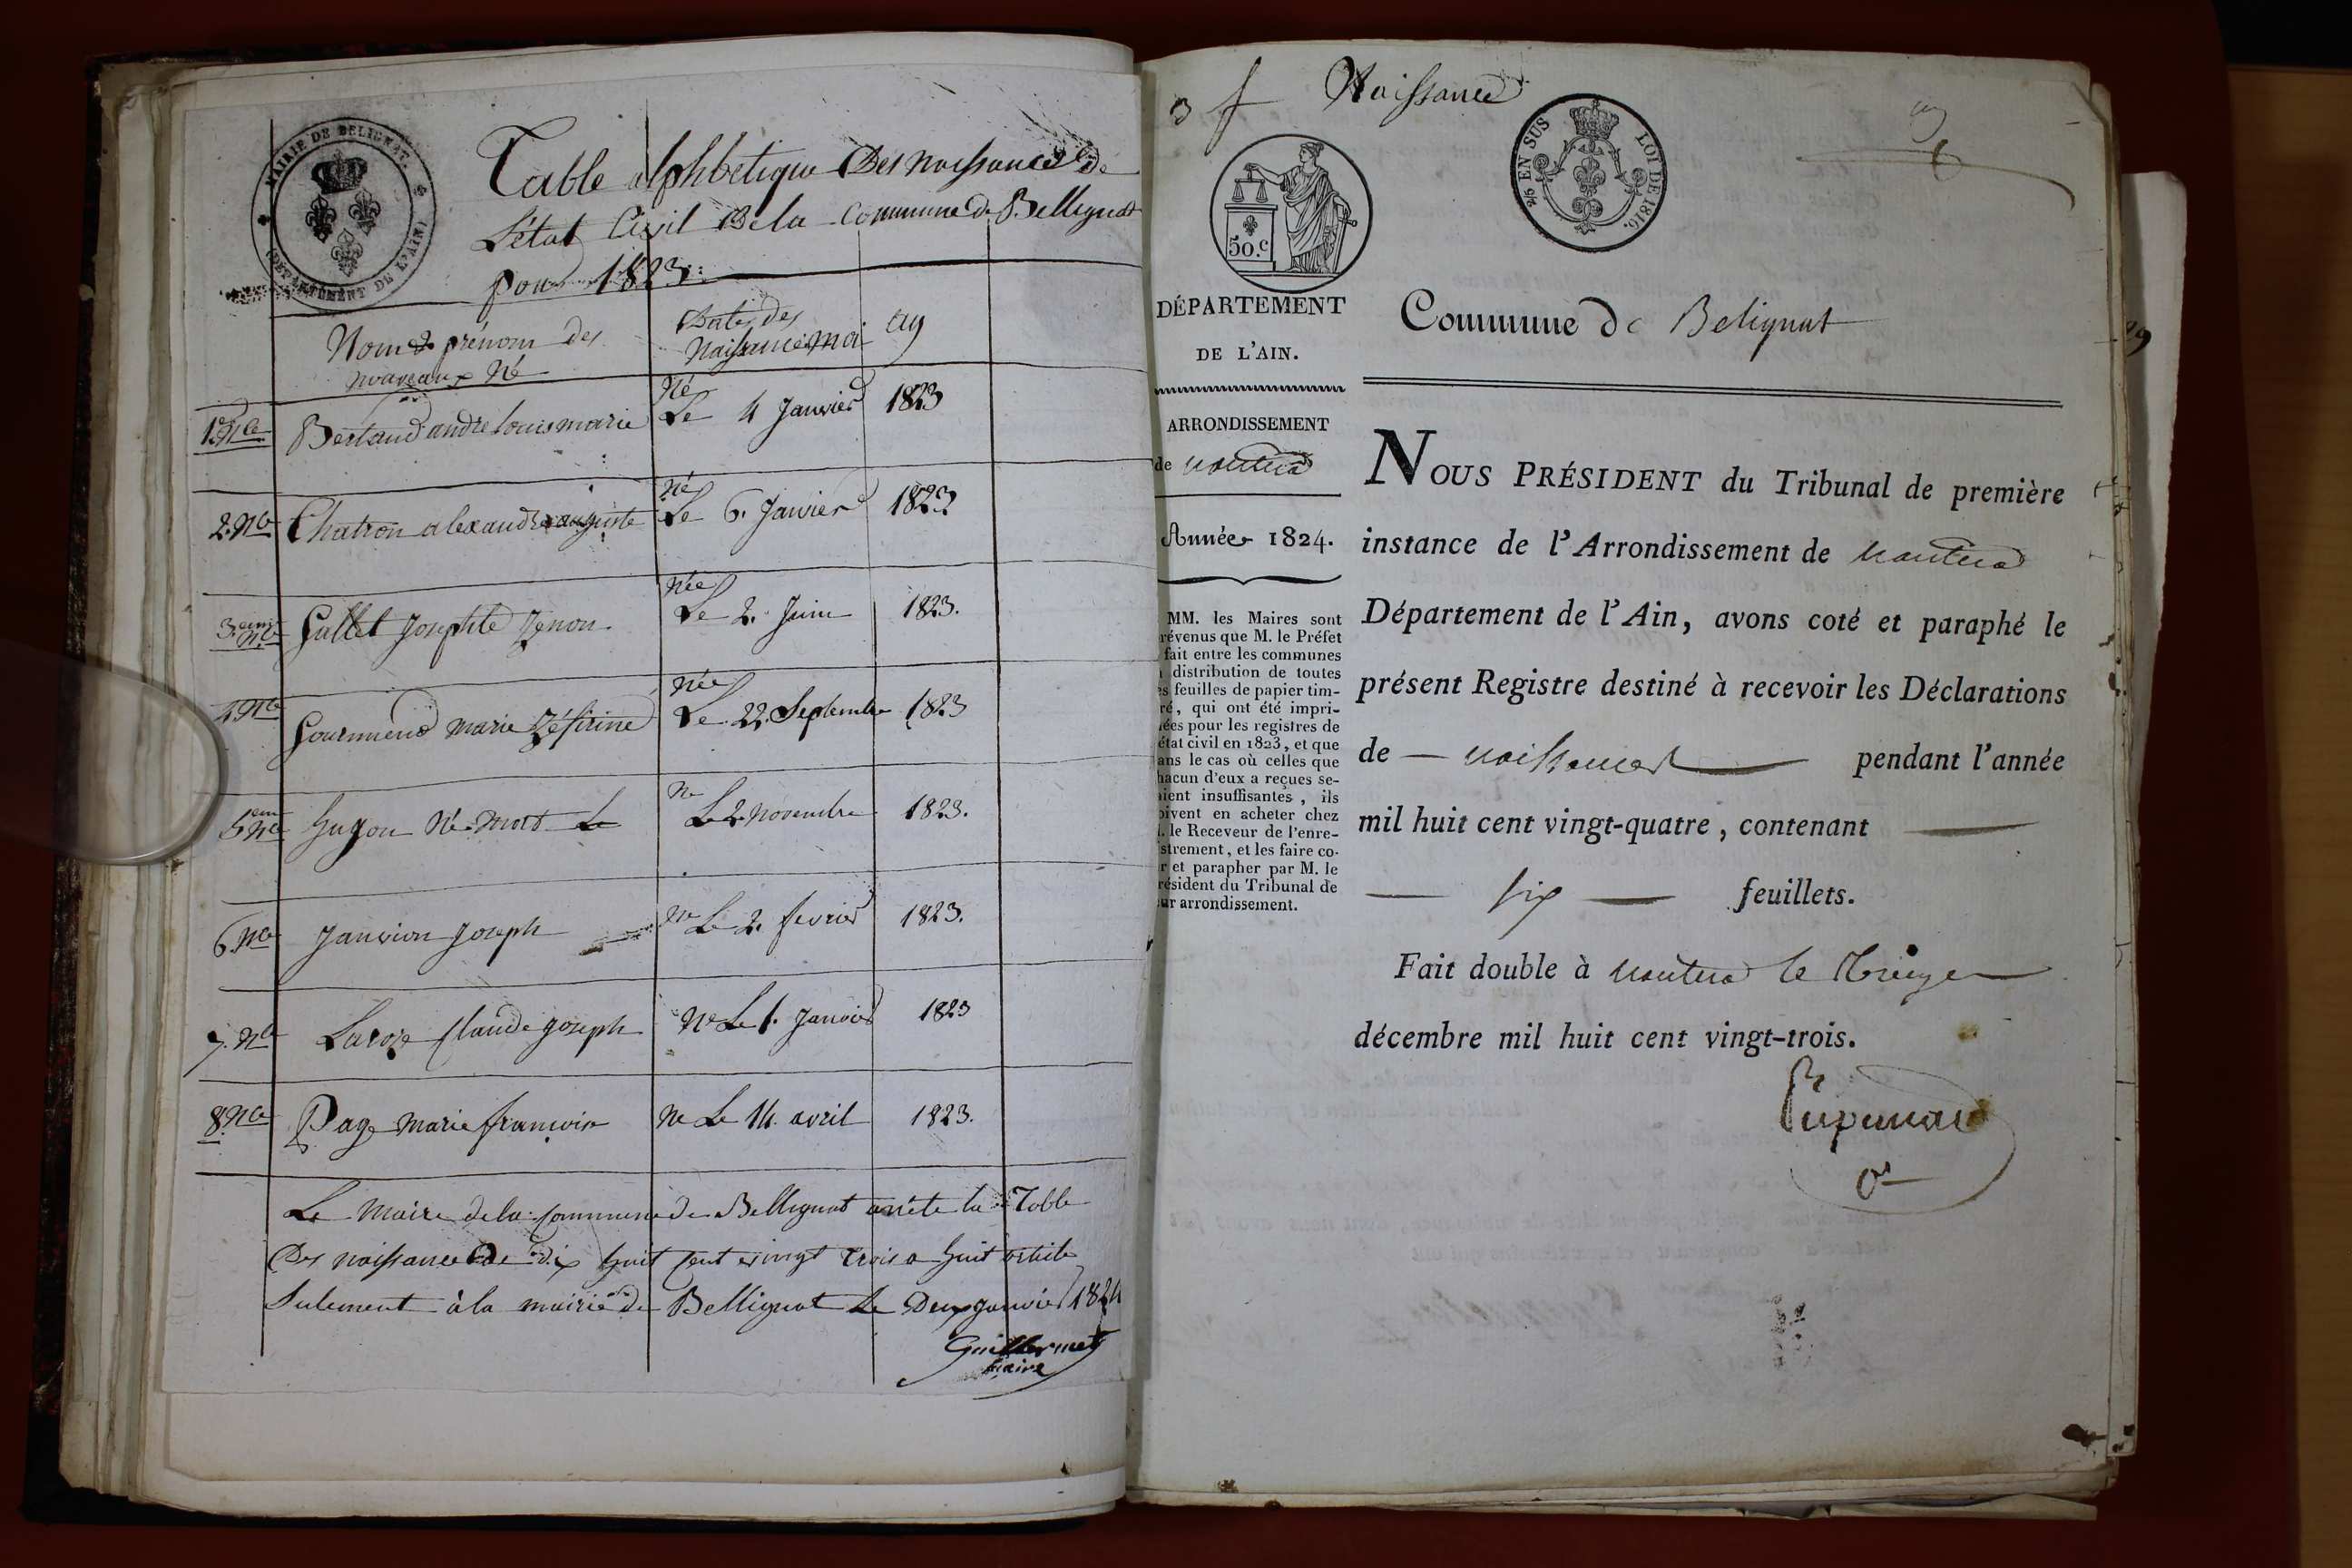 MAIRIE DE BELIGNAT
(DÉPARTEMENT DE L'AIN)
Table alphbetique Des naissance de
L'état Civil De la Commune de Bellignat
pour 1823.
Nom & prénom des
nouveaux Né
Dates des
Naissance moi
1823
1er Nce Bertaud andre louis marie Né Le 4 Janvier 1823
2. Nce Chatron alexandre auguste Né Le 6. Janvier 1823
3.eme Nce Gallet Josephte Zenon Née Le 2. Juin 1823.
4 Nce Gourmend marie Zéfirine Née Le 22. Septembre 1823
5eme Nce Hugon Né mort Le Ne Le 2 novembre 1823.
6. Nce Janvion Joseph Ne Le 2. fevrier 1823.
7. Nce Laroze Claude Joseph Ne Le 1. Janvier 1823
8. Nce Page marie francoise Ne Le 14 avril 1823.
Le Maire de la Commune de Bellignat arrête la Table
Des naissance de dix huit Cent vingt trois a huit article
Sulement à la mairie de Bellignat Le Deux Janvier 1824
Guillermet
maire
3 f Naissance
50.c
2/5 EN SUS LOI DE 1816.
DÉPARTEMENT
DE L'AIN.
ARRONDISSEMENT
de nantua
Année 1824.
MM. les Maires sont
révenus que M. le Préfet
fait entre les communes
distribution de toutes
es feuilles de papier tim-
ré, qui ont été impri-
ées pour les registres de
état civil en 1823, et que
ans le cas où celles que
hacun d'eux a reçues se-
aient insuffisantes, ils
oivent en acheter chez
. le Receveur de l'enre-
strement, et les faire co-
r et parapher par M. le
résident du Tribunal de
ur arrondissement.
Commune de Belignat
NOUS PRÉSIDENT du Tribunal de première
instance de l'Arrondissement de nantua
Département de l'Ain, avons coté et paraphé le
présent Registre destiné à recevoir les Déclarations
de — naissances — pendant l'année
mil huit cent vingt-quatre, contenant —
— six — feuillets.
Fait double à nantua le treize
décembre mil huit cent vingt-trois.
19